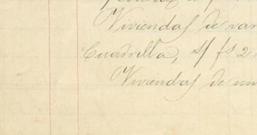 Viviendas de van
Cuadrilla, s/ fs 2
Viviendas de un